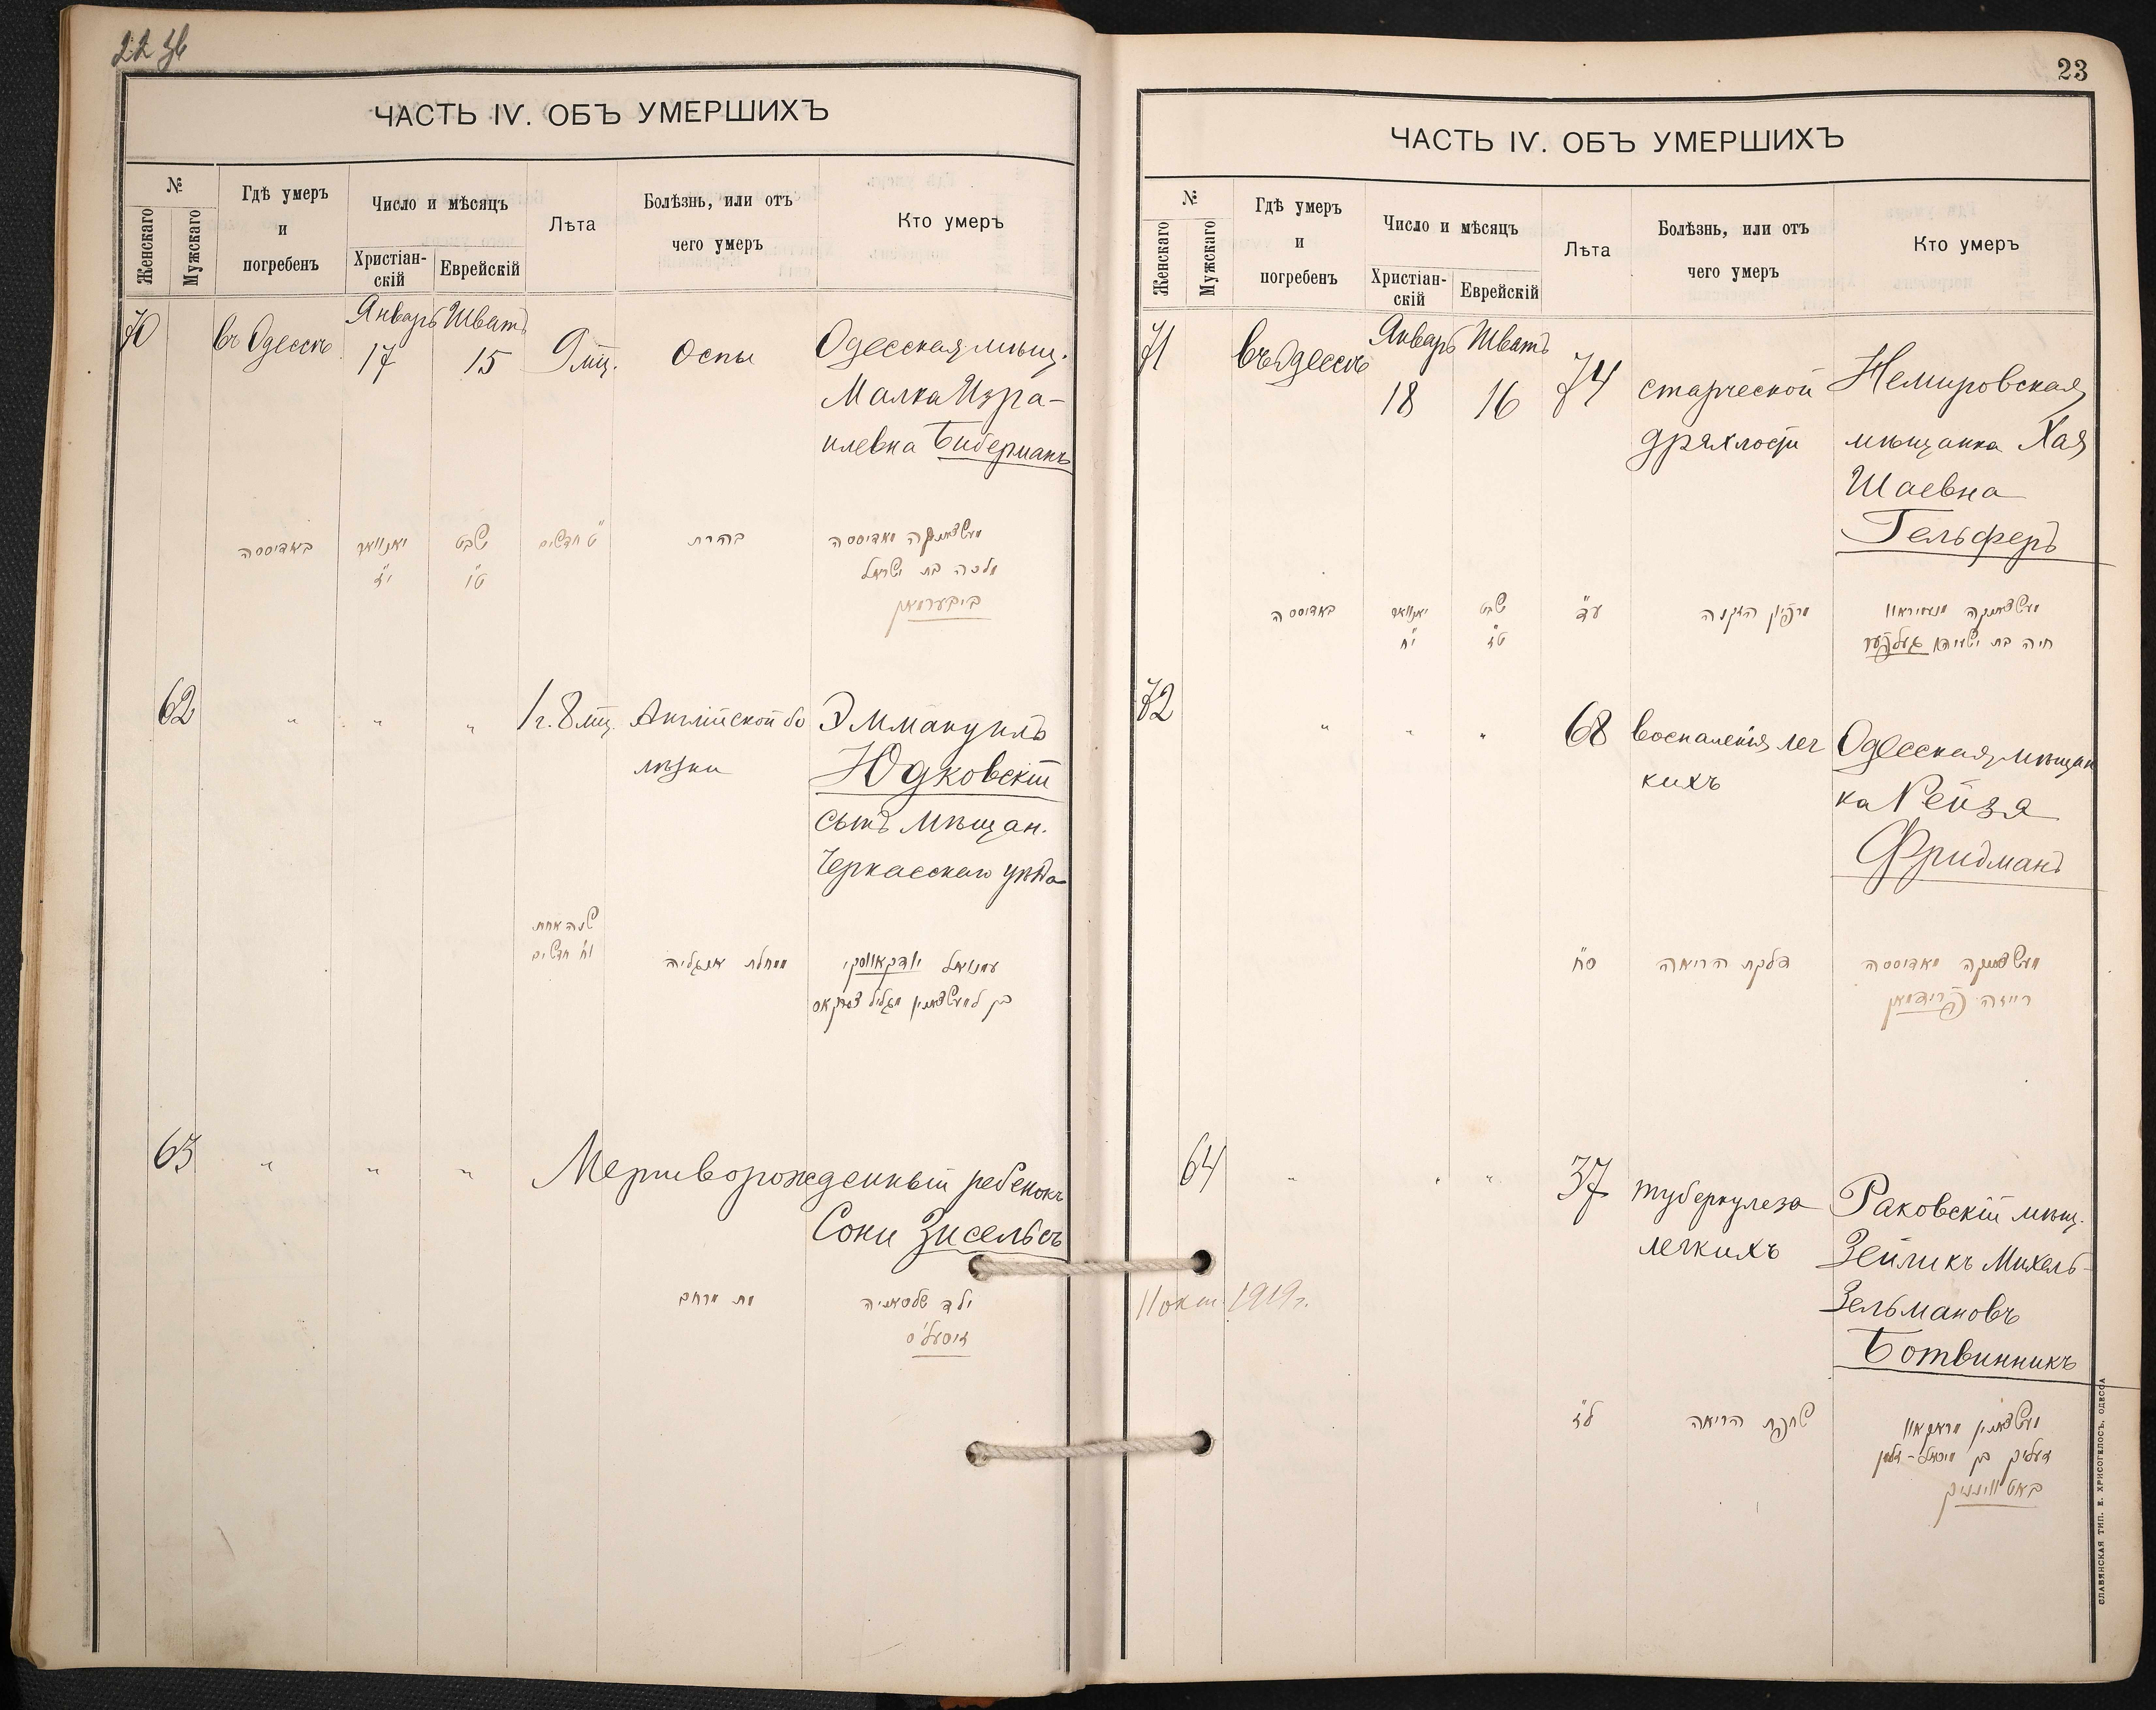 22 зб
ЧАСТЬ IV. ОБЪ УМЕРШИХЪ
№
Женскаго
Мужскаго
Гдѣ умеръ
и
погребенъ
Число и мѣсяцъ
Христіан-
скій
Еврейскій
Лѣта
Болѣзнь, или отъ
чего умеръ
Кто умеръ
70
въ Одессѣ
Январь
17
Шватъ
15
9 мц.
Оспы
Одесская мѣщ.
Малка Изра-
илевна Биберманъ
באדיססה
יאנוואר
י״ז
שבט
ט״ו
ט׳ חדשים
מעשצאנקה מאדיססה
מלכה בת ישראל
ביבערמאן
62
" " "
1 г. 8 мц.
Англійской бо
лѣзни
Эммануилъ
Юдковскій
сынъ мѣщан.
Черкасскаго уѣзда
שנה אחת
וח׳ חדשים
ממחלת אנגליה
עמנואל יודקאווסקי
63
" " "
Мертворожденный ребенокъ
Сони Зисельсъ
מת מרחם
ילד של סאניה
זיסעל׳ס
23
ЧАСТЬ IV. ОБЪ УМЕРШИХЪ
№
Женскаго
Мужскаго
Гдѣ умеръ
и
погребенъ
Число и мѣсяцъ
Христіан-
скій
Еврейскій
Лѣта
Болѣзнь, или отъ
чего умеръ
Кто умеръ
71
въ Одессѣ
Январь
18
Шватъ
16
74
старческой
дряхлости
Немировская
мѣщанка Хая
Шаевна
Гельферъ
באדיססה
יאנוואר
י״ח
שבט
ט״ז
ע״ד
מרפיון הזקנה
חיה בת ישעיהא געלפער
72
" " "
68
воспаленія лег
кихъ
Одесская мѣщан
ка Рейзя
Фридманъ
ס״ח
דלקת הריאה
מעשצאנקה מאדיססה
רייזה פרידמאן
64
" " "
37
туберкулеза
легкихъ
Раковскій мѣщ.
Зейликъ Михель-
Зельмановъ
Ботвинникъ
11 окт. 1919 г.
ל״ז
שחפת הריאה
מעשצאנין מראקאוו
זעליק בן מיכאל-זלמן
באטווינניק
СЛАВЯНСКАЯ ТИП. Е. ХРИСОГЕЛОСЪ, ОДЕССА